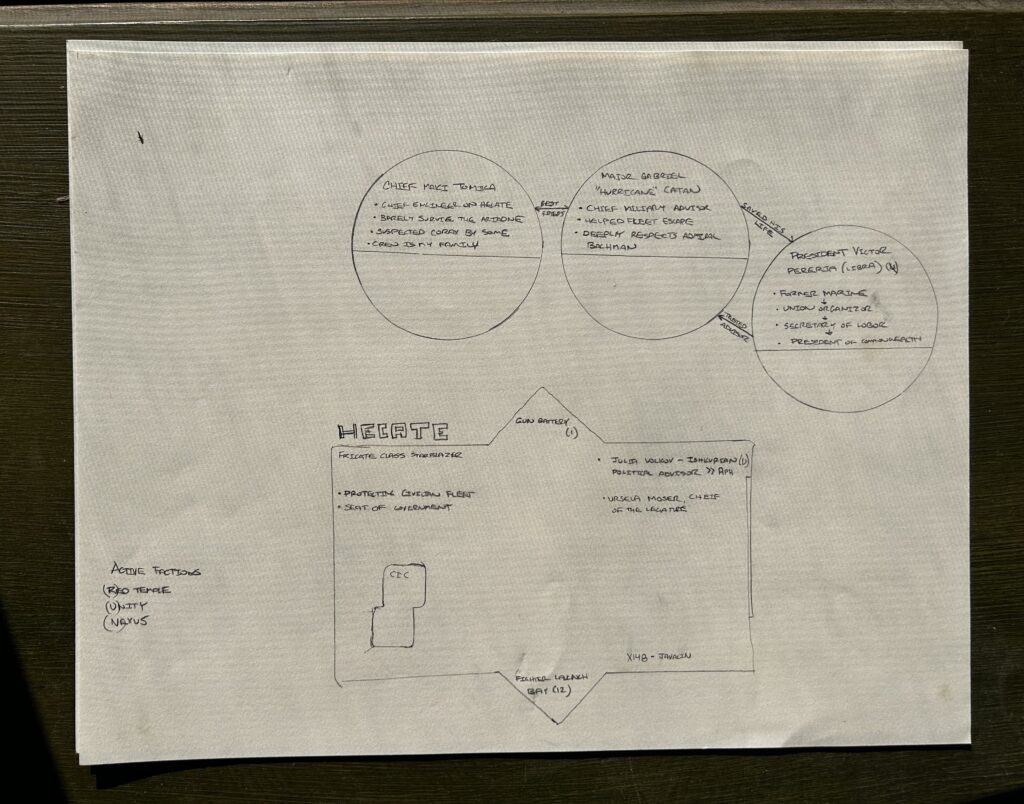 CHIEF MAKI TOMIKA
• CHIEF ENGINEER OF HECATE
• BARELY SURVIVE THE
• SUSPECTED BY SOME
• CREW IS MY FAMILY
BEST
FRIENDS
MAJOR GABRIEL
"HURRICANE" CATAN
• CHIEF MILITARY ADVISOR
• HELPED FLEET ESCAPE
• DEEPLY RESPECTS ADMIRAL
BACHMAN
SAVED HIS
LIFE
TRUSTED
ADVISOR
PRESIDENT VICTOR
PERERIA (LIBRA) (U)
• FORMER MARINE
• UNION ORGANIZOR
• SECRETARY OF LOBOR
• PRESIDENT OF COMMONWEALTH
HECATE
FRIGATE CLASS STARBLAZER
• PROTECTING CIVILIAN FLEET
• SEAT OF GOVERNMENT
GUN BATTERY
(1)
• JULIA VOLKOV – (U)
POLITICAL ADVISOR >>
• URSULA MOSER, CHEIF
OF THE
CIC
X148 - JAVALIN
FIGHTER LAUNCH
BAY (12)
ACTIVE FACTIONS
(R)ED TEMPLE
(U)NITY
(N)AXUS